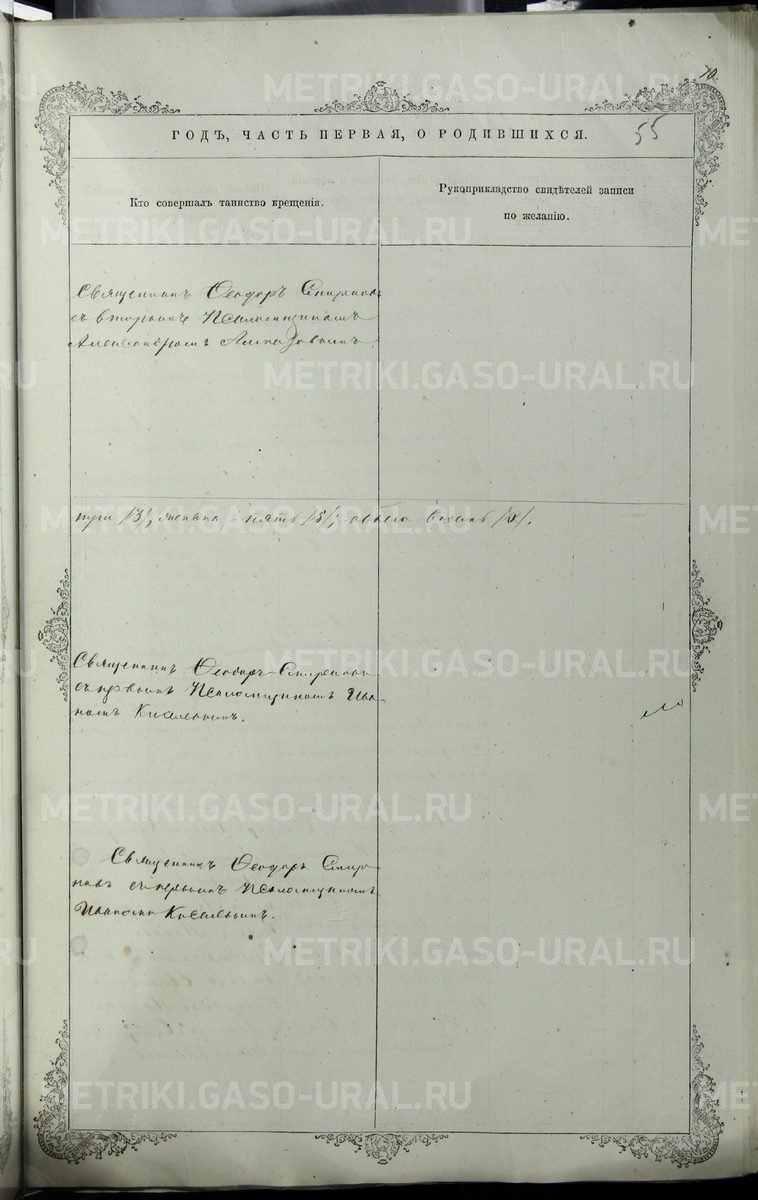 10.
55
ГОДЪ, ЧАСТЬ ПЕРВАЯ, О РОДИВШИХСЯ.
Кто совершалъ таинство крещенія.
Рукоприкладство свидѣтелей записи
по желанію.
Священникъ Ѳеодоръ
съ вторымъ Псаломщикомъ
Александромъ
три /3/, женска пять /5/, обоего восемь /8/.
Священникъ Ѳеодоръ
съ первымъ Псаломщикомъ Ива
номъ Киселевымъ.
Священникъ Ѳеодоръ
съ первымъ Псаломщикомъ
Иваномъ Киселевымъ.
METRIKI.GASO-URAL.RU